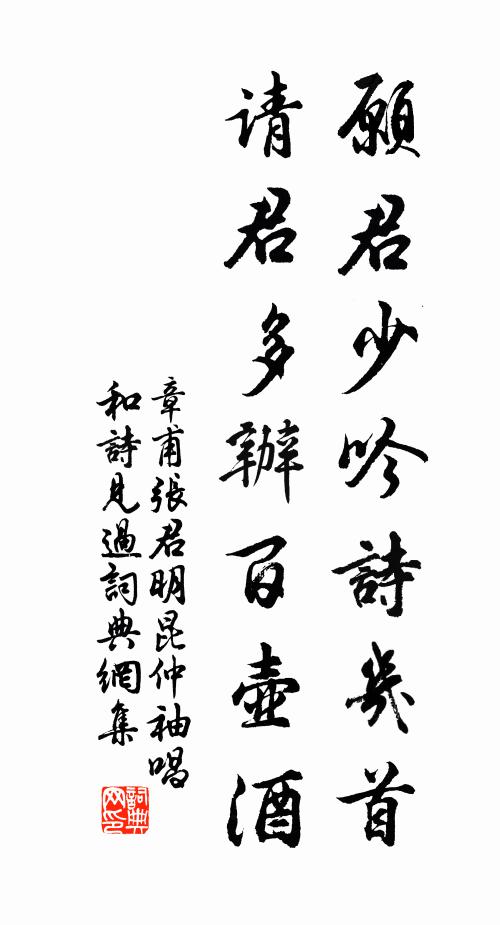 願君少吟詩幾首
请君多辦百壺酒
章甫張君明昆仲袖唱
和詩見過詞典網集
詞典网印